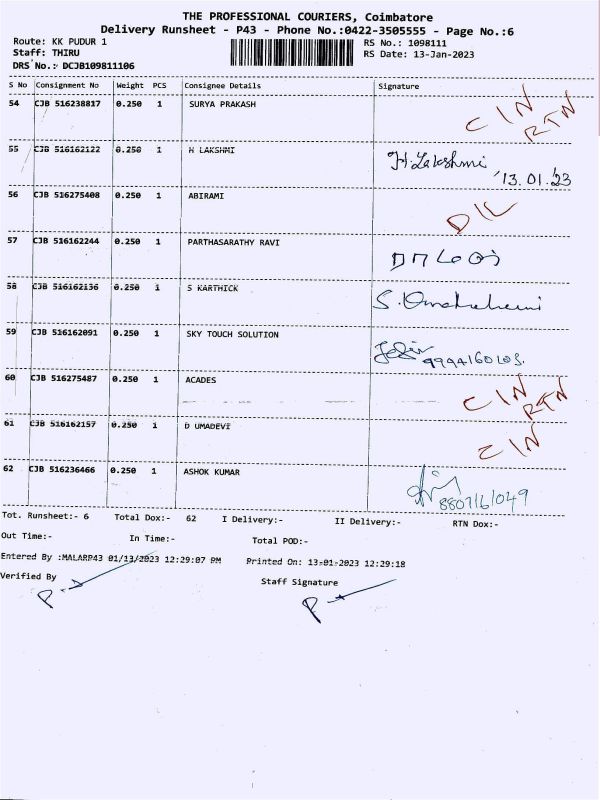 THE PROFESSIONAL COURIERS, Coimbatore
Delivery Runsheet - P43 - Phone No.:0422-3505555 - Page No.:6
Route: KK PUDUR 1 RS No.: 1098111
Staff: THIRU RS Date: 13-Jan-2023
DRS No.: DCJB109811106
S No Consignment No Weight PCS Consignee Details Signature
54 CJB 516238817 0.250 1 SURYA PRAKASH CIN RTN
55 CJB 516162122 0.250 1 H LAKSHMI H.Lakshmi
13.01.23
56 CJB 516275408 0.250 1 ABIRAMI D/L
57 CJB 516162244 0.250 1 PARTHASARATHY RAVI
58 CJB 516162136 0.250 1 S KARTHICK S.
59 CJB 516162091 0.250 1 SKY TOUCH SOLUTION
60 CJB 516275487 0.250 1 ACADES CIN RTN
61 CJB 516162157 0.250 1 D UMADEVI CIN
62 CJB 516236466 0.250 1 ASHOK KUMAR
8807161049
Tot. Runsheet:- 6 Total Dox:- 62 I Delivery:- II Delivery:- RTN Dox:-
Out Time:- In Time:- Total POD:-
Entered By :MALARP43 01/13/2023 12:29:07 PM Printed On: 13-01-2023 12:29:18
Verified By Staff Signature